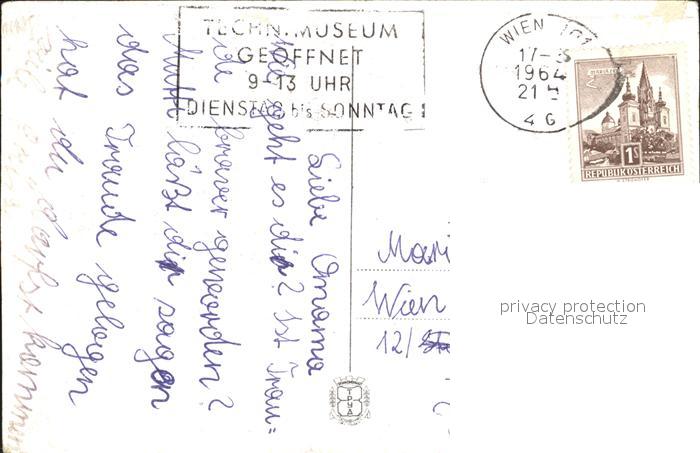 TECHN. MUSEUM
GEÖFFNET
9-13 UHR
DIENSTAG bis SONNTAG
WIEN 101
17-3
1964
21
4 G
MARIAZELL
1S
REPUBLIK ÖSTERREICH
Liebe Omama
Wie geht es dir? Ist Trau=
de braver geworden?
Mutti läßt dir sagen
das Traude gelogen
hat du darfst kommen
Mari
Wien
12/
privacy protection
Datenschutz